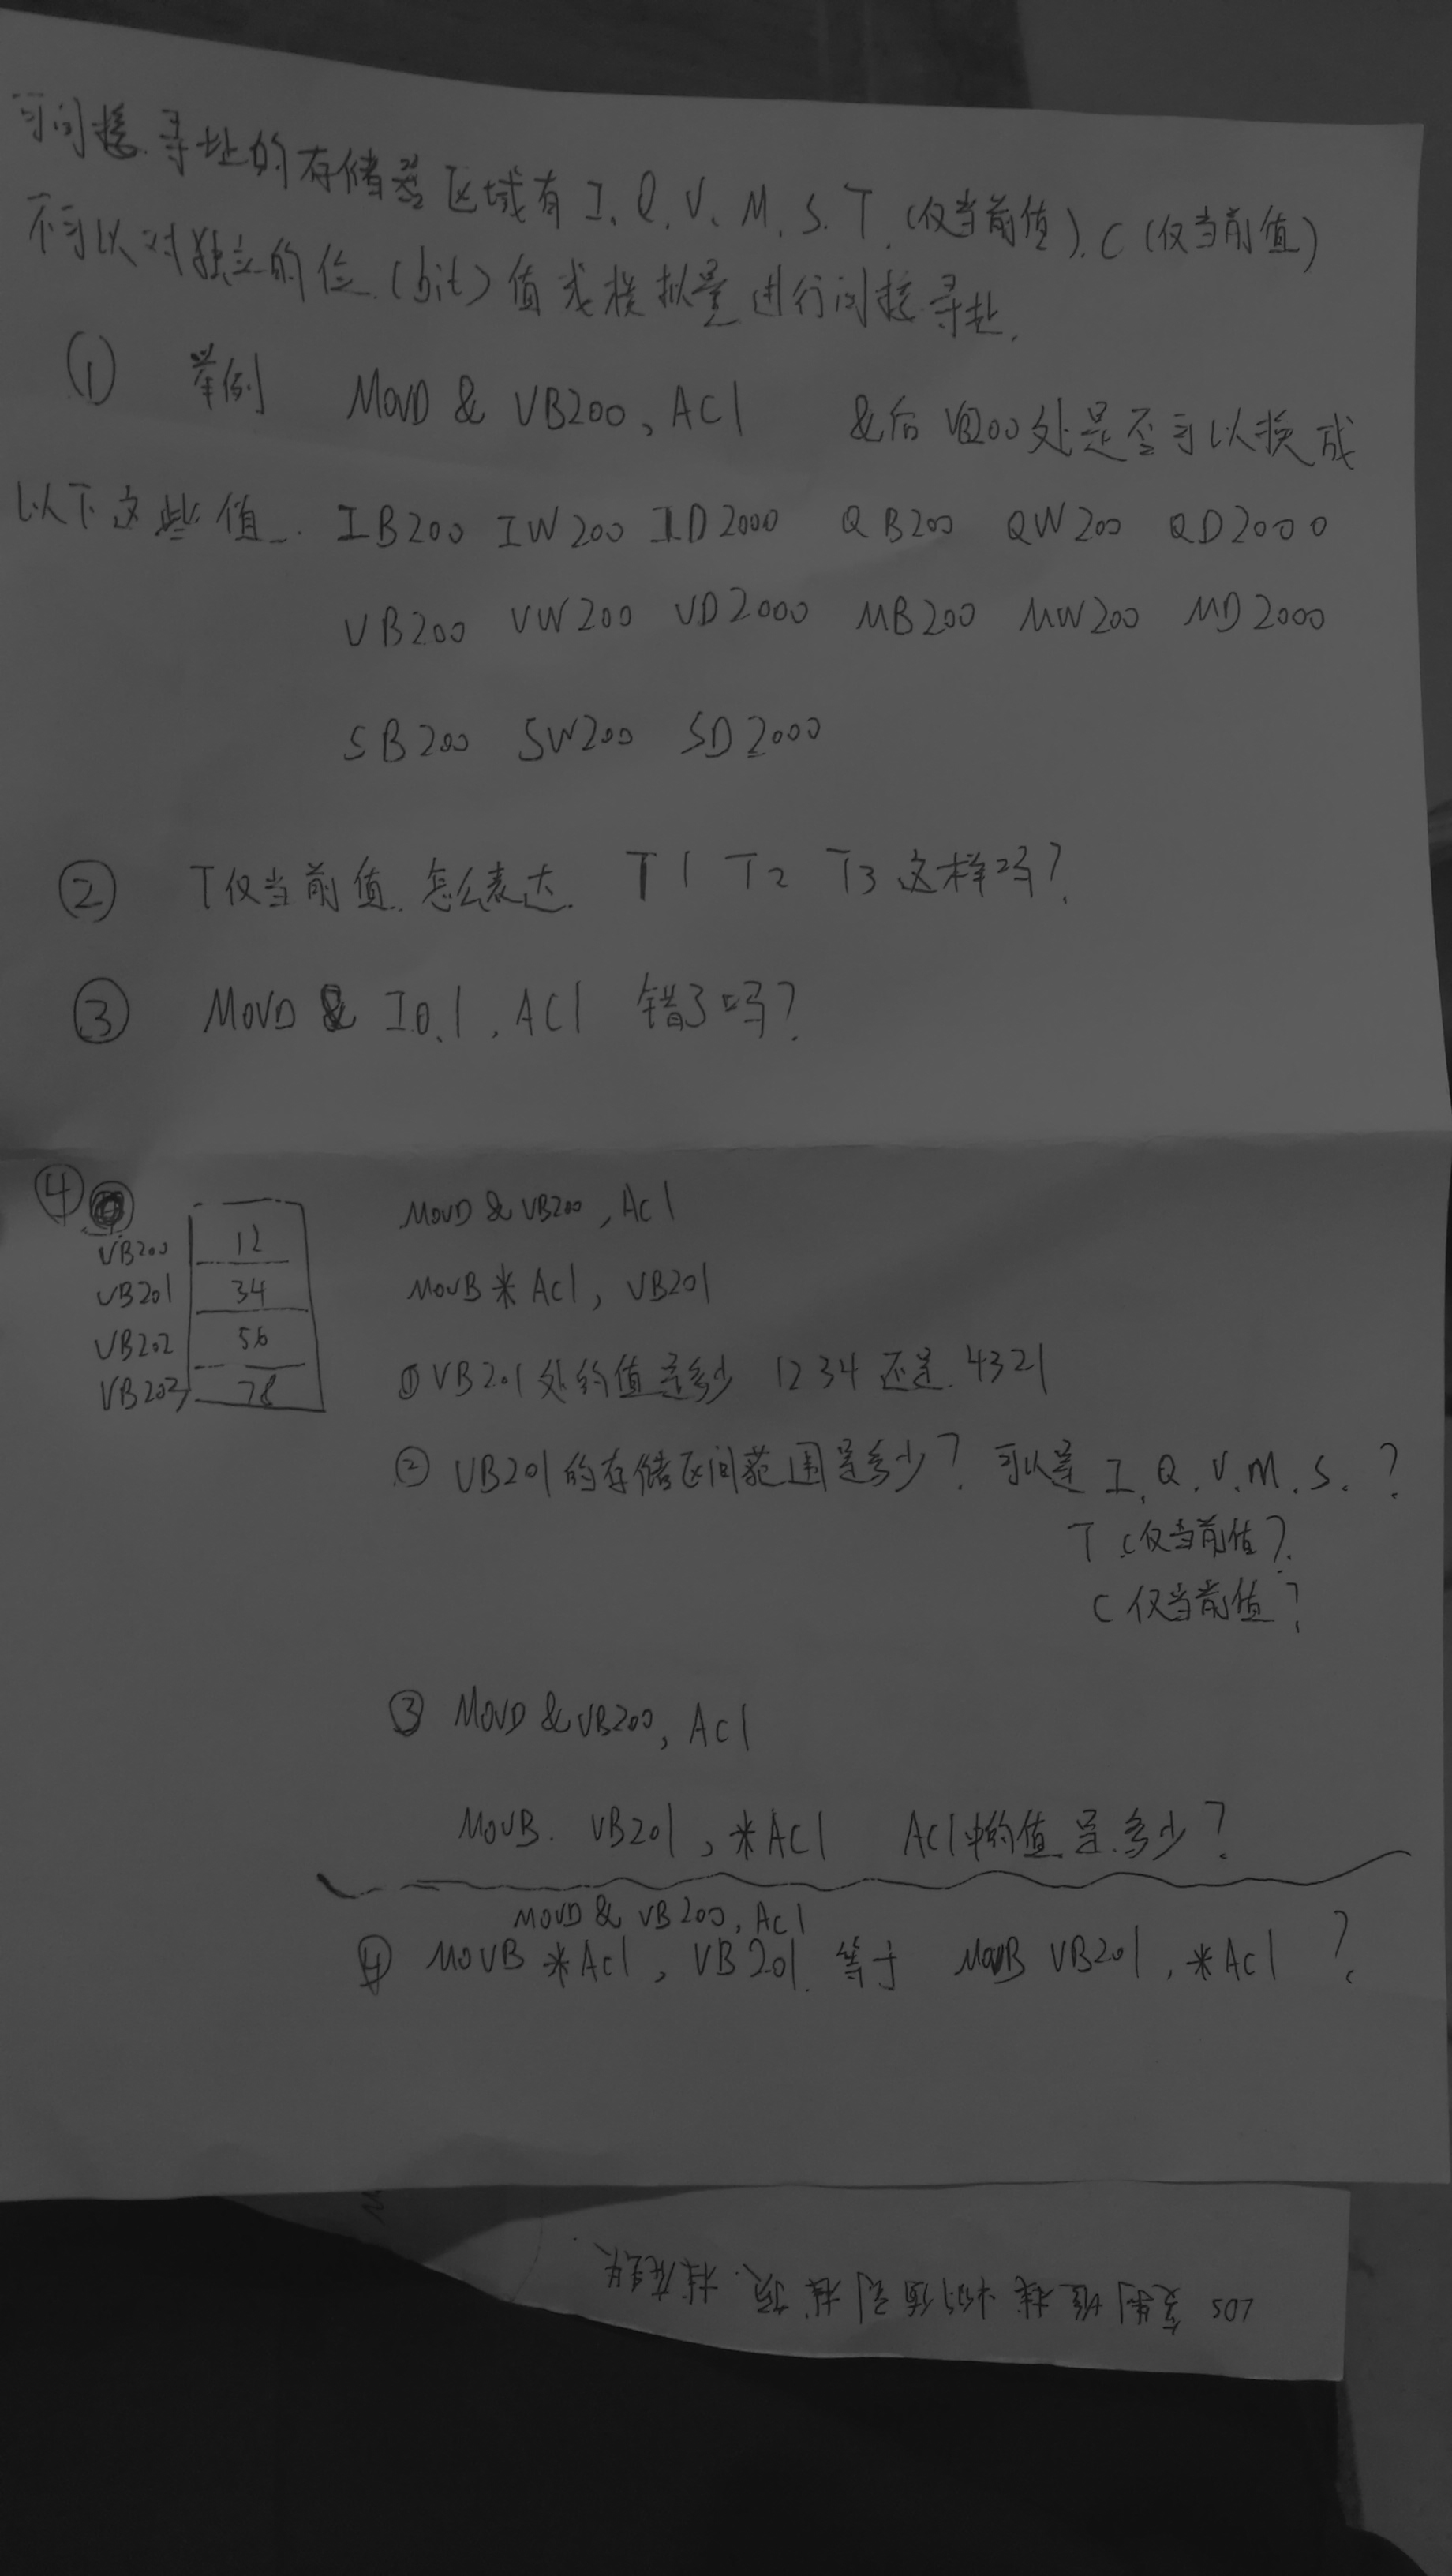 可间接寻址的存储器区域有 I、Q、V、M、S、T、(仅当前值)、C (仅当前值)
不可以对独立的位 (bit) 值或模拟量进行间接寻址、
① 举例 MOVD & VB200, AC1 &后 VB200处是否可以换成
以下这些值. IB200 IW200 ID2000 QB200 QW200 QD2000
VB200 VW200 VD2000 MB200 MW200 MD2000
SB200 SW200 SD2000
② T仅当前值 怎么表达 T1 T2 T3 这样吗?
③ MOVD & I0.1, AC1 错了吗?
④
MOVD & VB200, AC1
VB200 12
MOVB * AC1, VB201
VB201 34
VB202 56
① VB201处的值是多少 1234 还是 4321
VB203 78
② VB201的存储区间范围是多少? 可以是 I、Q、V、M、S、?
T (仅当前值?
C 仅当前值?
③ MOVD & VB200, AC1
MOVB. VB201, *AC1 AC1中的值是多少?
MOVD & VB200, AC1
④ MOVB *AC1, VB201 等于 MOVB VB201, *AC1 ?
LDS 复制堆栈 值到栈顶、栈底丢失